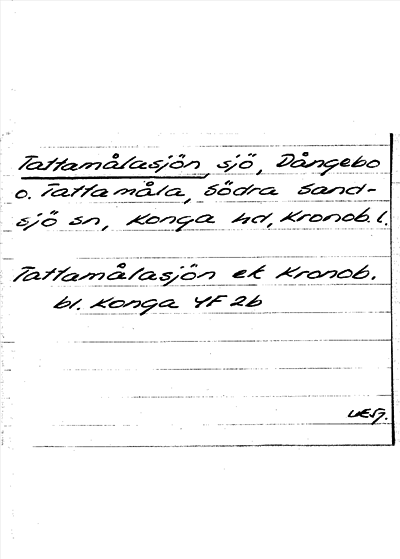 Tattamålasjön, sjö, Dångebo
o. Tattamåla, Södra Sand-
sjö sn, Konga hd, Kronob. l.
Tattamålasjön ek Kronob.
bl. Konga 4F 2b